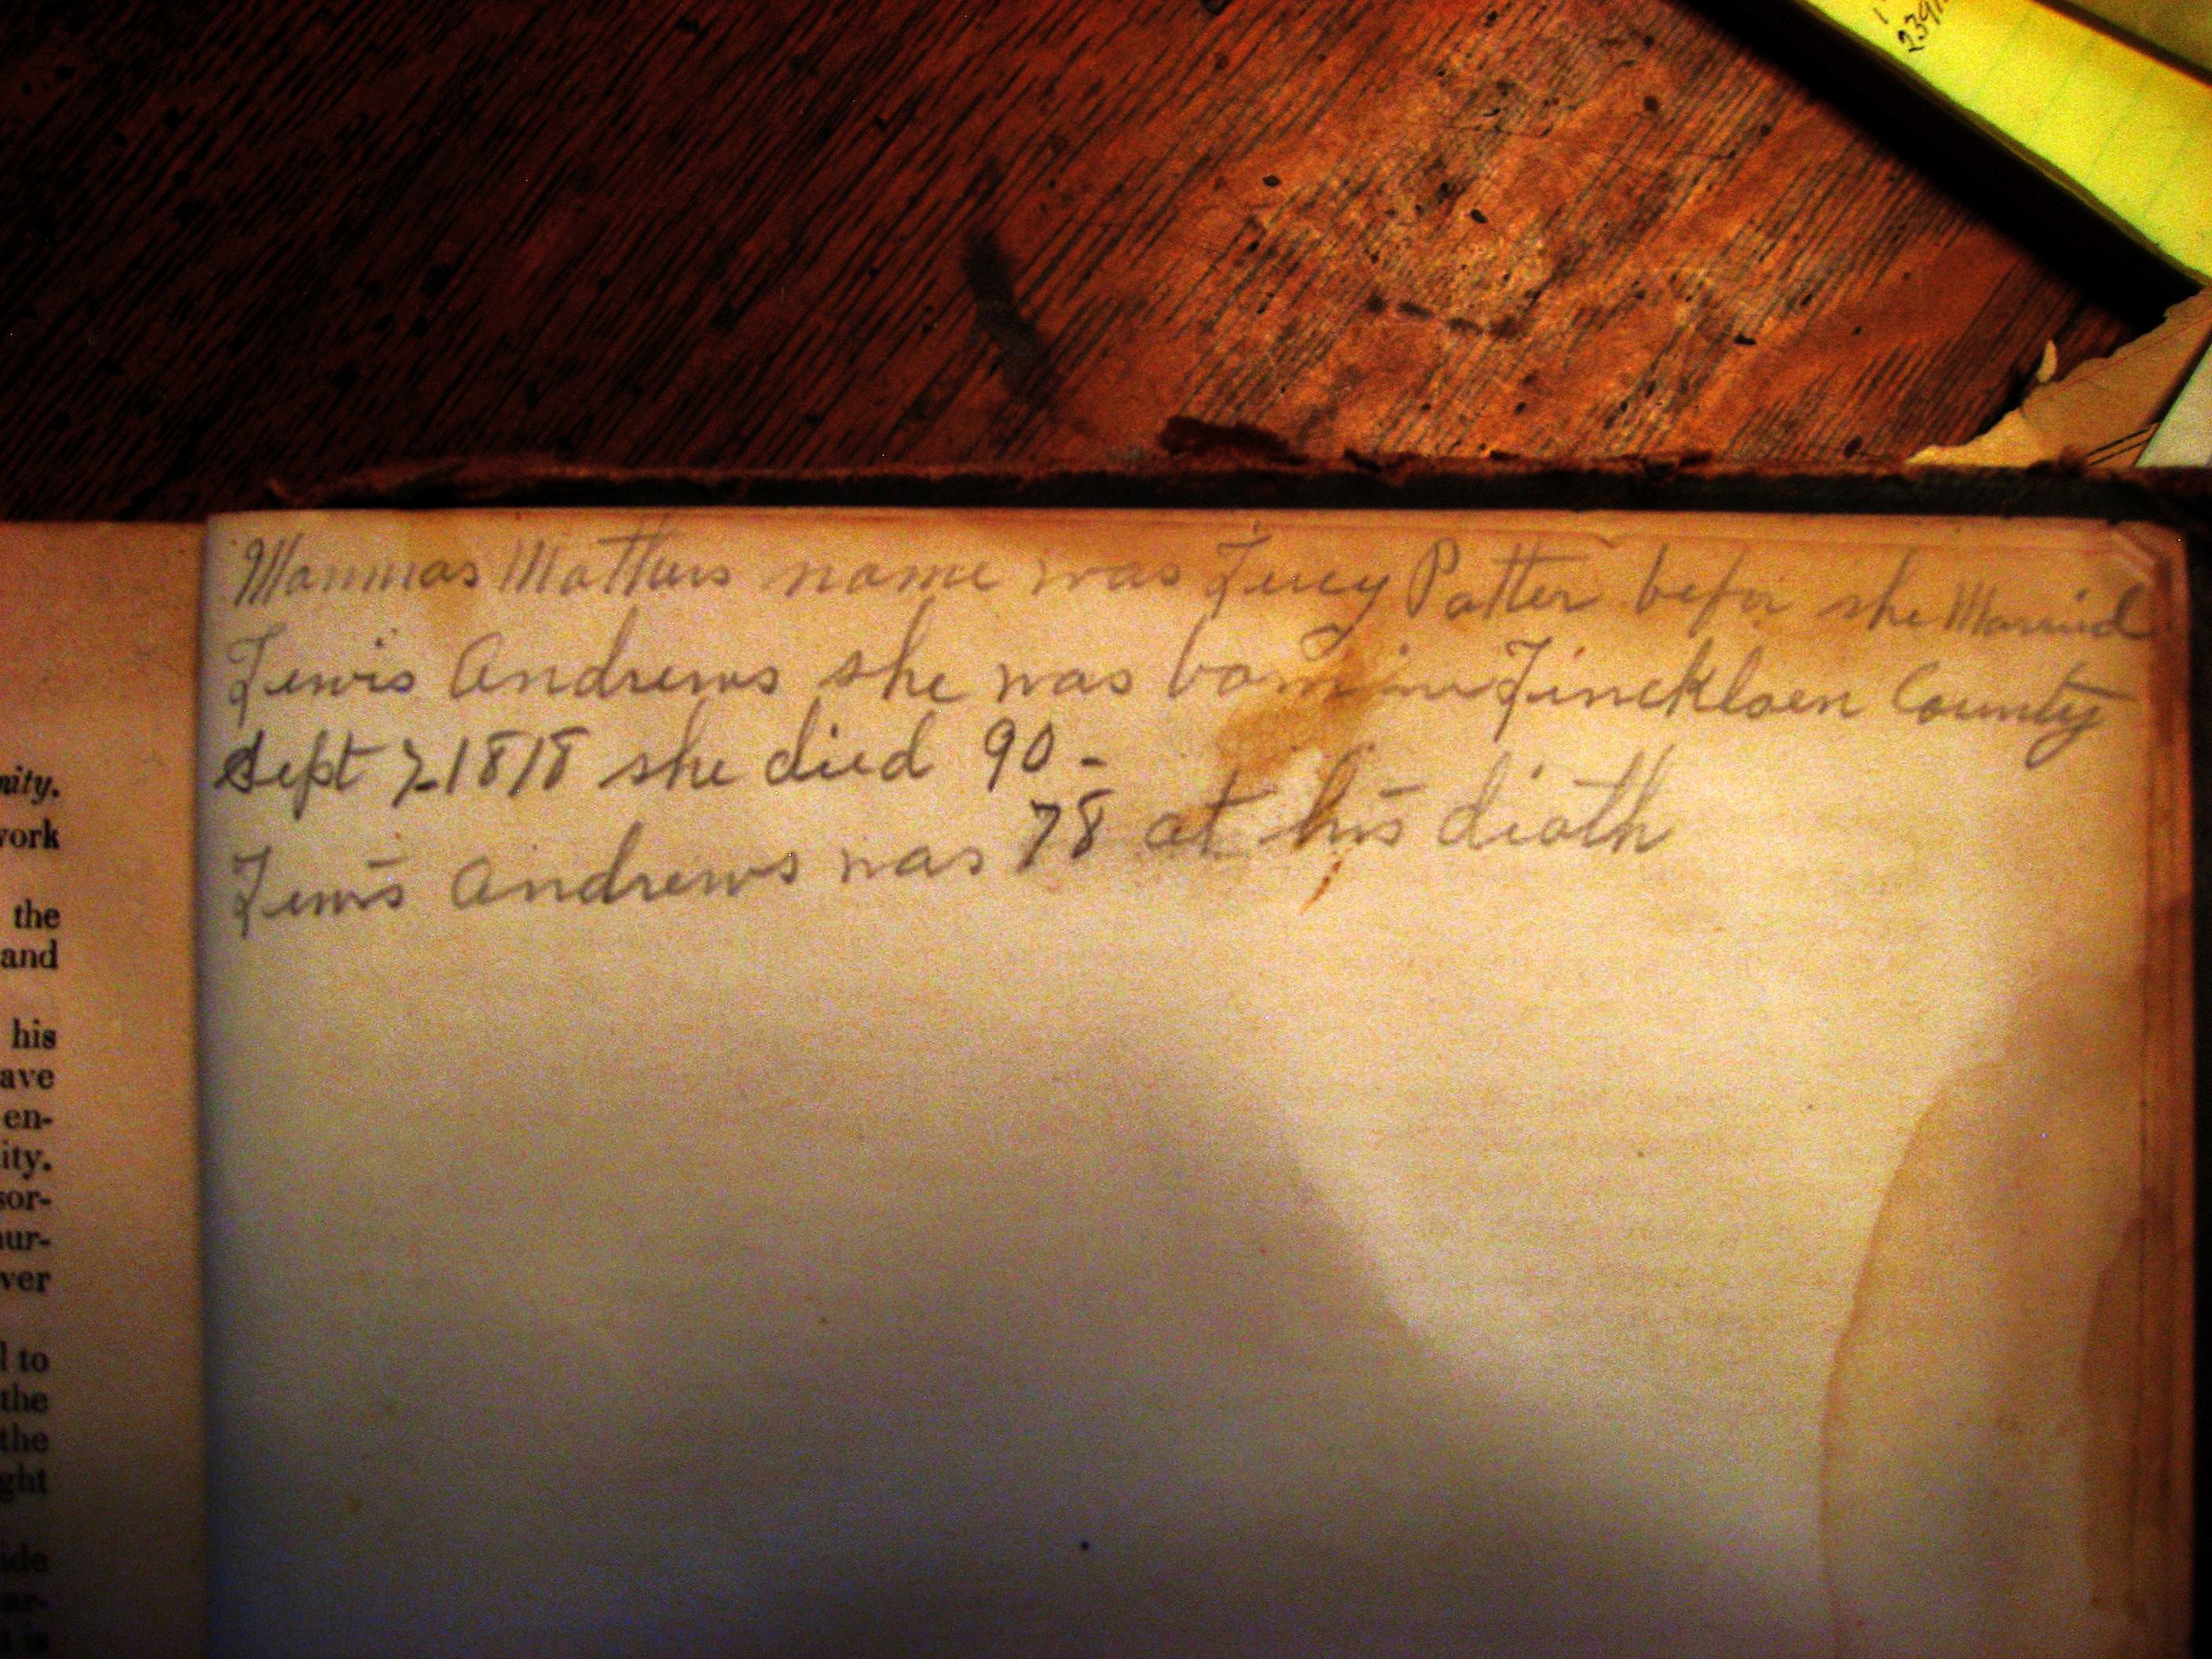 Mammas Mothers name was Lucy Potter befor she Married
Lewis Andrews she was born in Lincklaen County
Sept 2 1818 she died 90 -
Lewis Andrews was 78 at his diath
nity.
work
the
and
his
ave
en-
ity.
sor-
ur-
ver
l to
the
the
ght
ide
ar-
t is